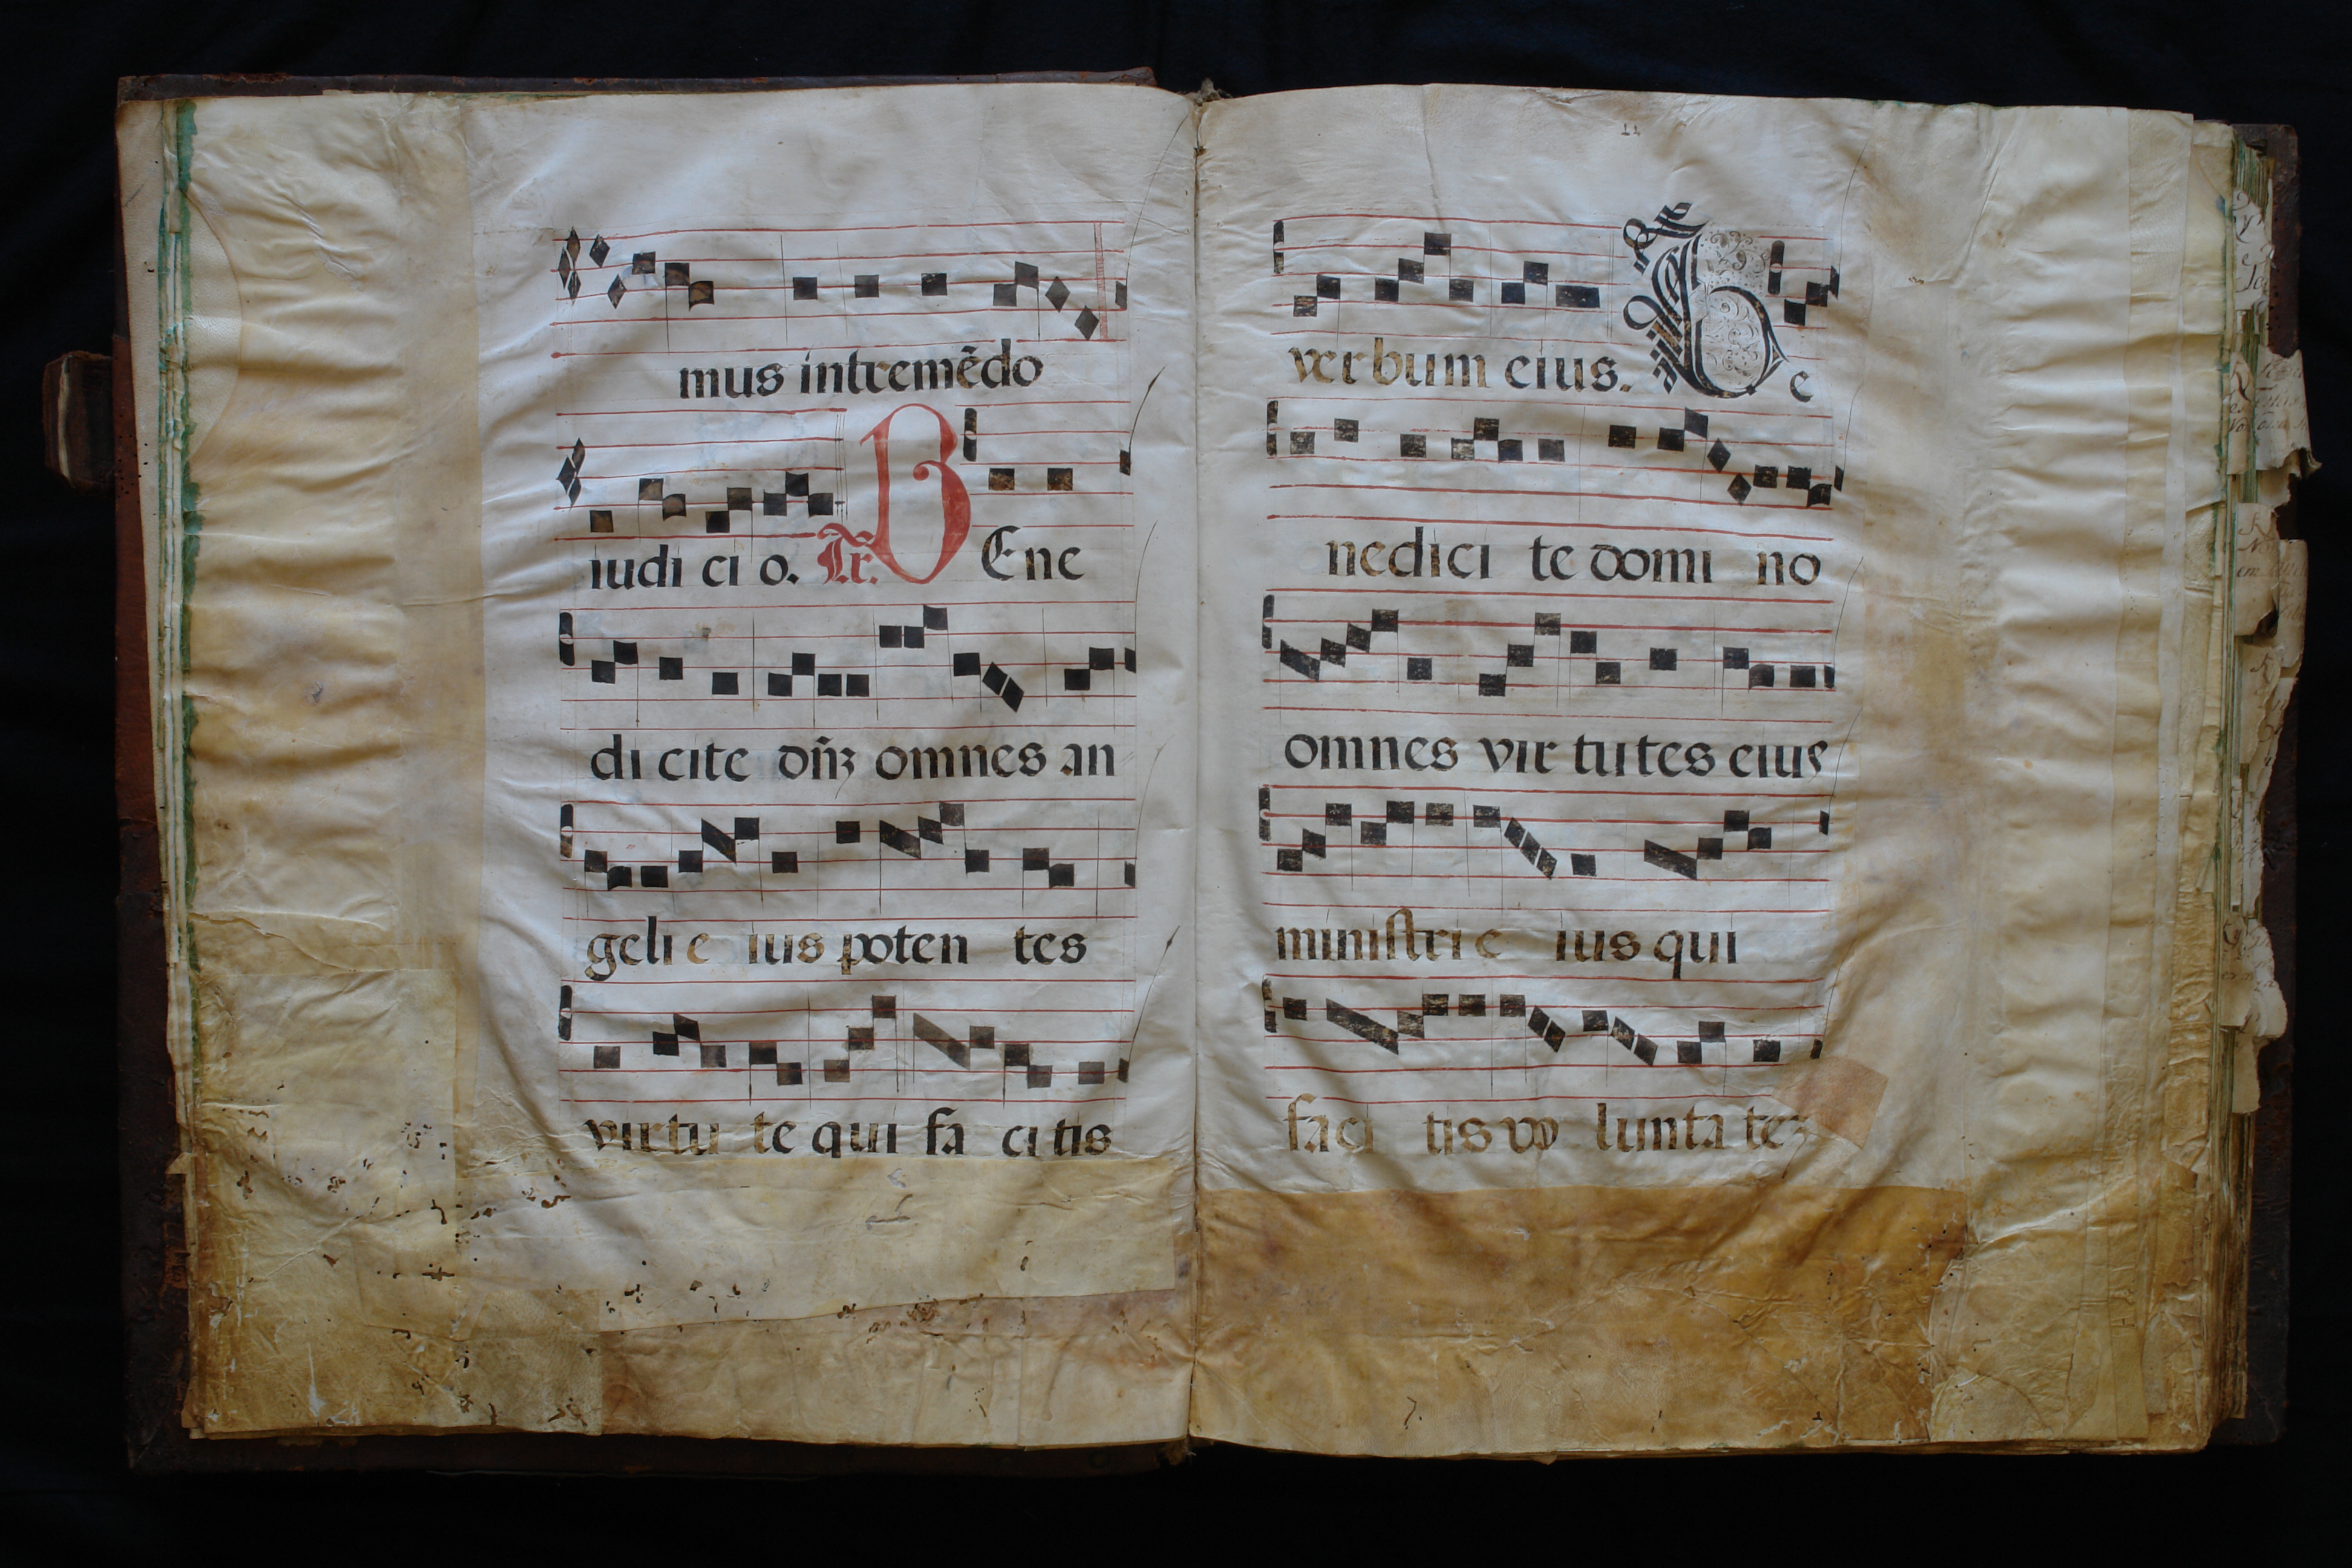 mus intremẽdo
iudi ci o. Tr. BEne
di cite dñ̃ʒ omnes an
geli e ius poten tes
virtu te qui fa ci tis
11
verbum eius. Be
nedici te domi no
omnes vir tutes eius
ministri e ius qui
faci tis vo lunta teʒ